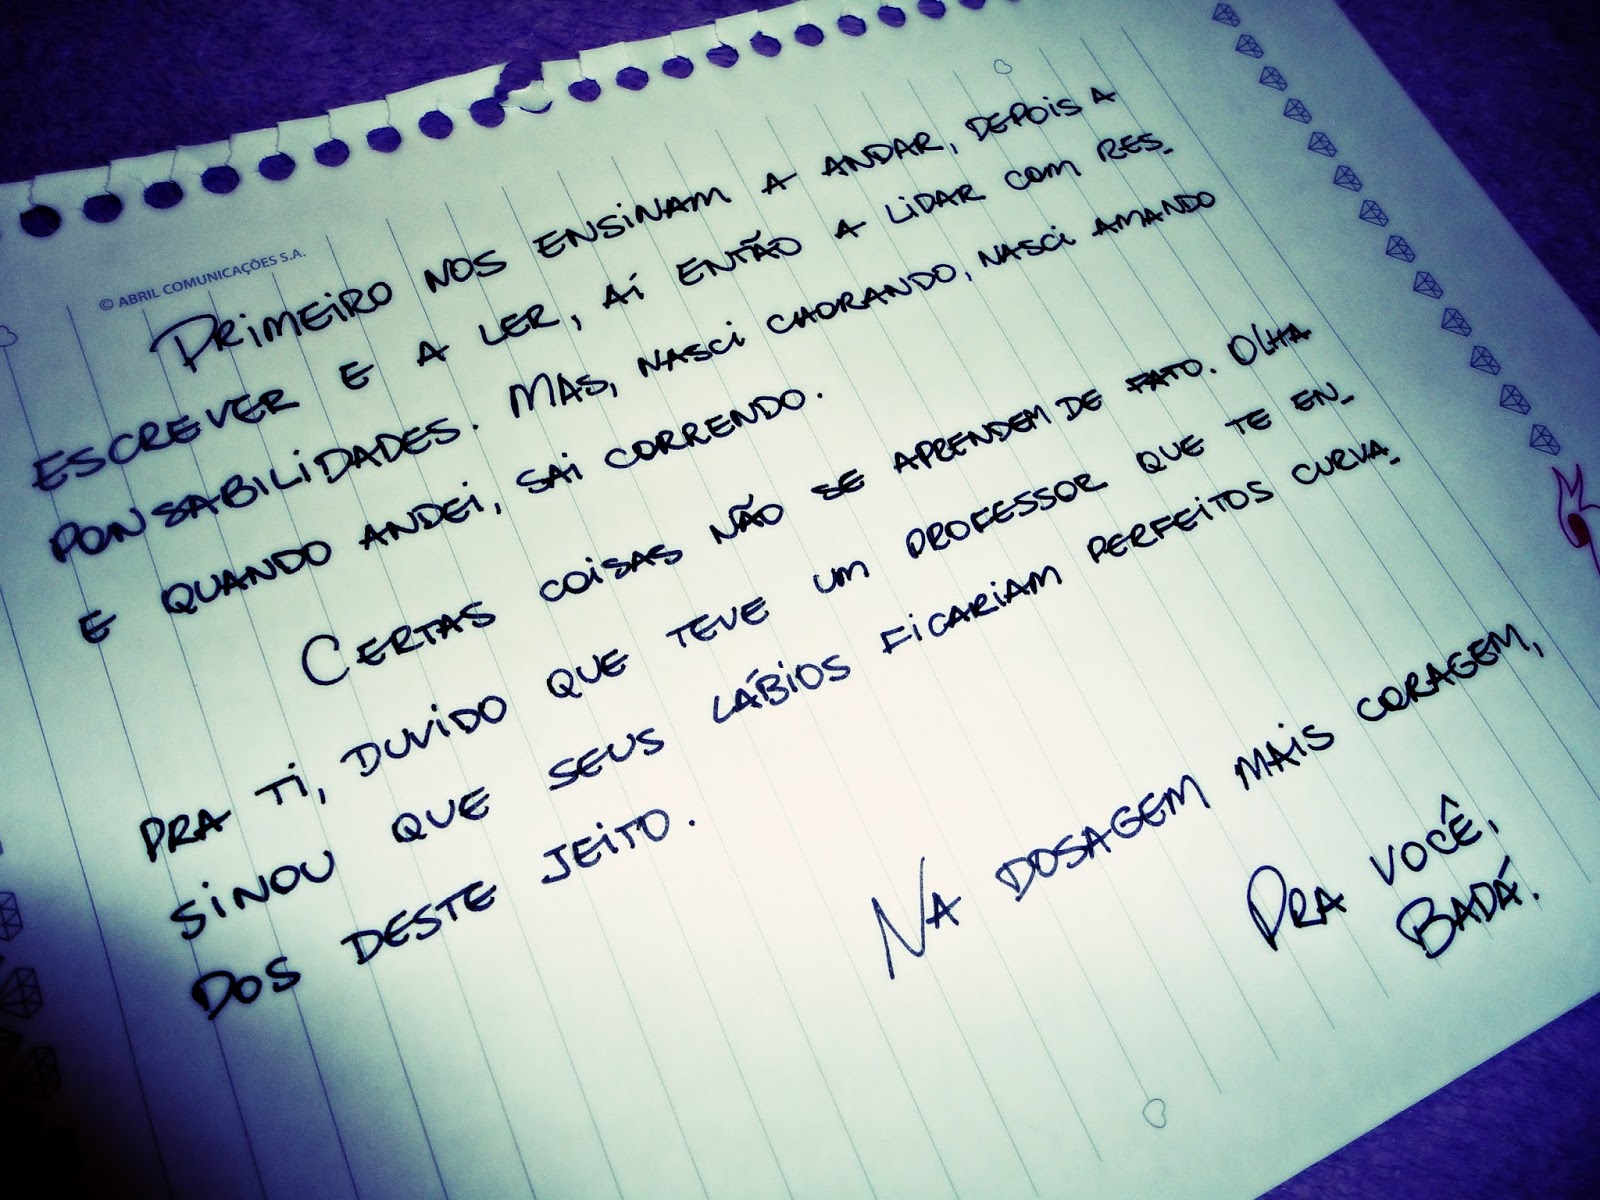 © ABRIL COMUNICAÇÕES S.A.
PRIMEIRO NOS ENSINAM A ANDAR, DEPOIS A
ESCREVER E A LER, AÍ ENTÃO A LIDAR COM RES-
PONSABILIDADES. MAS, NASCI CHORANDO, NASCI AMANDO
E QUANDO ANDEI, SAI CORRENDO.
CERTAS COISAS NÃO SE APRENDEM DE FATO. OLHA
PRA TI, DUVIDO QUE TEVE UM PROFESSOR QUE TE EN-
SINOU QUE SEUS LÁBIOS FICARIAM PERFEITOS CURVA-
DOS DESTE JEITO.
NA DOSAGEM MAIS CORAGEM,
PRA VOCÊ,
BADÁ.